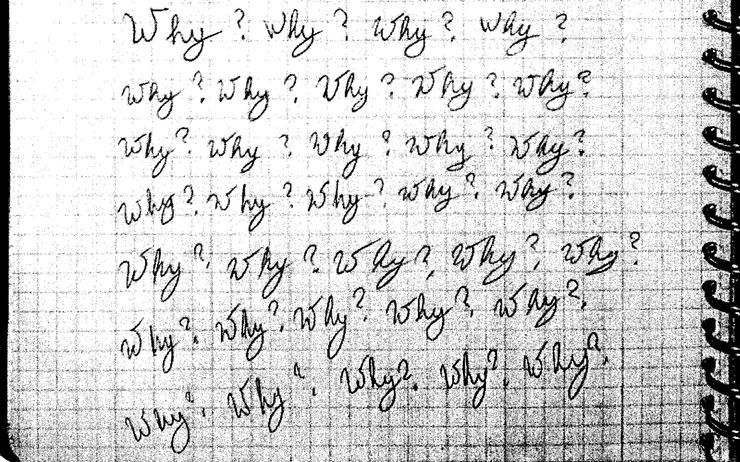 Why? Why? Why? Why?
Why? Why? Why? Why? Why?
Why? Why? Why? Why? Why?
Why? Why? Why? Why? Why?
Why? Why? Why? Why? Why?
Why? Why? Why? Why? Why?
Why? Why? Why? Why? Why?